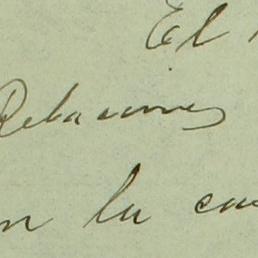 El
Relaciones
en la